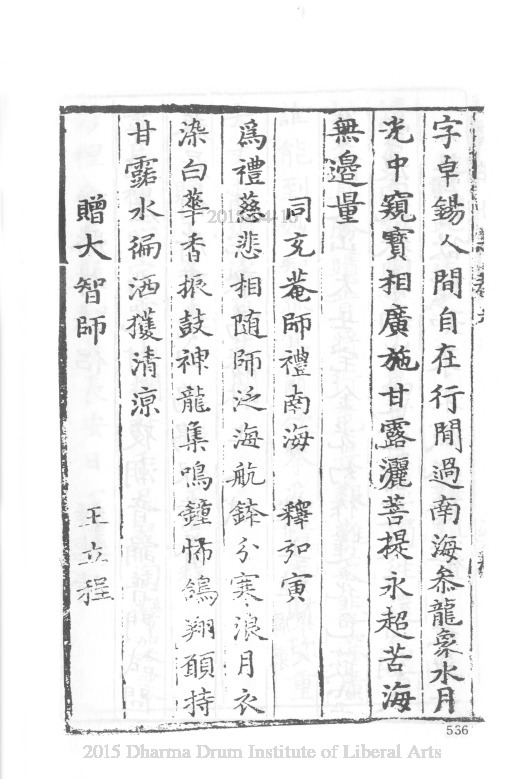 字卓錫人間自在行閒過南海叅龍象水月
光中窺寶相廣施甘露灑菩提永超苦海
無邊量
同玄菴師禮南海 釋弘寅
爲禮慈悲相隨師泛海航鉢分寒浪月衣
染白華香振鼓神龍集鳴鐘怖鴿翔願持
甘露水徧洒獲清凉
贈大智師 王立程
556
2015 Dharma Drum Institute of Liberal Arts